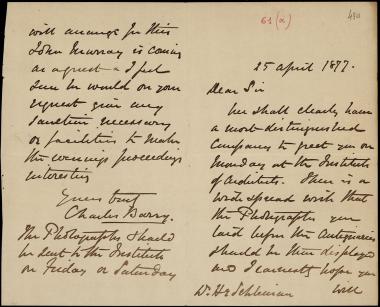 61 (a)
25 April 1877.
Dear Sir
We shall clearly have
a most distinguished
Company to greet you on
Monday at the Institute
of Architects. There is a
wide spread wish that
the Photographs you
laid before the Antiquaries
should be then displayed
and I earnestly hope you
will
Dr Hy Schliemann
will arrange for this
John Murray is coming
as a guest & I feel
sure he would on your
request give any
sanction necessary
or facilities to make
the evenings proceedings
interesting
Yours truly
Charles Barry.
The Photographs should
be sent to the Institute
on Friday or Saturday